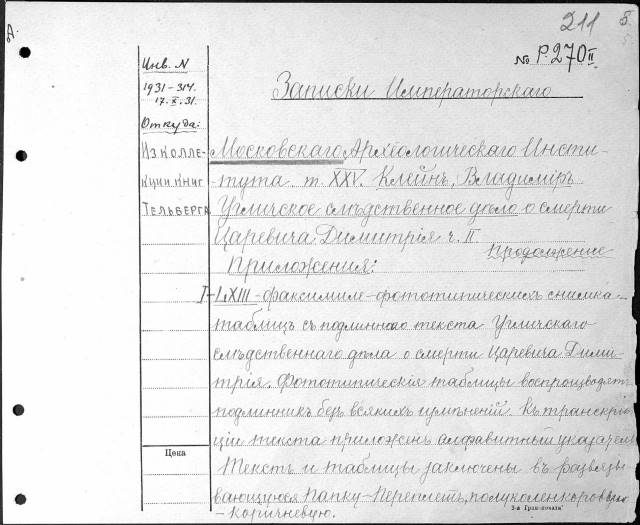 А.
211 5.
№ Р.270 II
Инв. N
1931-314.
17.X.31.
Откуда:
Из колле-
кции книг
Тельберга
Цена
Записки Императорскаго
Московскаго Археологическаго Инсти-
тута т. XXV. Клейнъ, Владимiръ
Угличское слѣдственное дѣло о смерти
Царевича Димитрiя ч. II.
Продолжение
Приложения:
I-LXIII-факсимиле-фототипическихъ снимка-
таблицъ съ подлиннаго текста Угличскаго
слѣдственнаго дѣла о смерти Царевича Дими-
трiя. Фототипическiя таблицы воспроизводятъ
подлинник безъ всякихъ измѣненiй. Къ транскрип-
цiи текста приложенъ алфавитный указатель
Текстъ и таблицы заключены въ развязы-
вающуюся Папку-Переплетъ, полуколенкоровую
-коричневую.